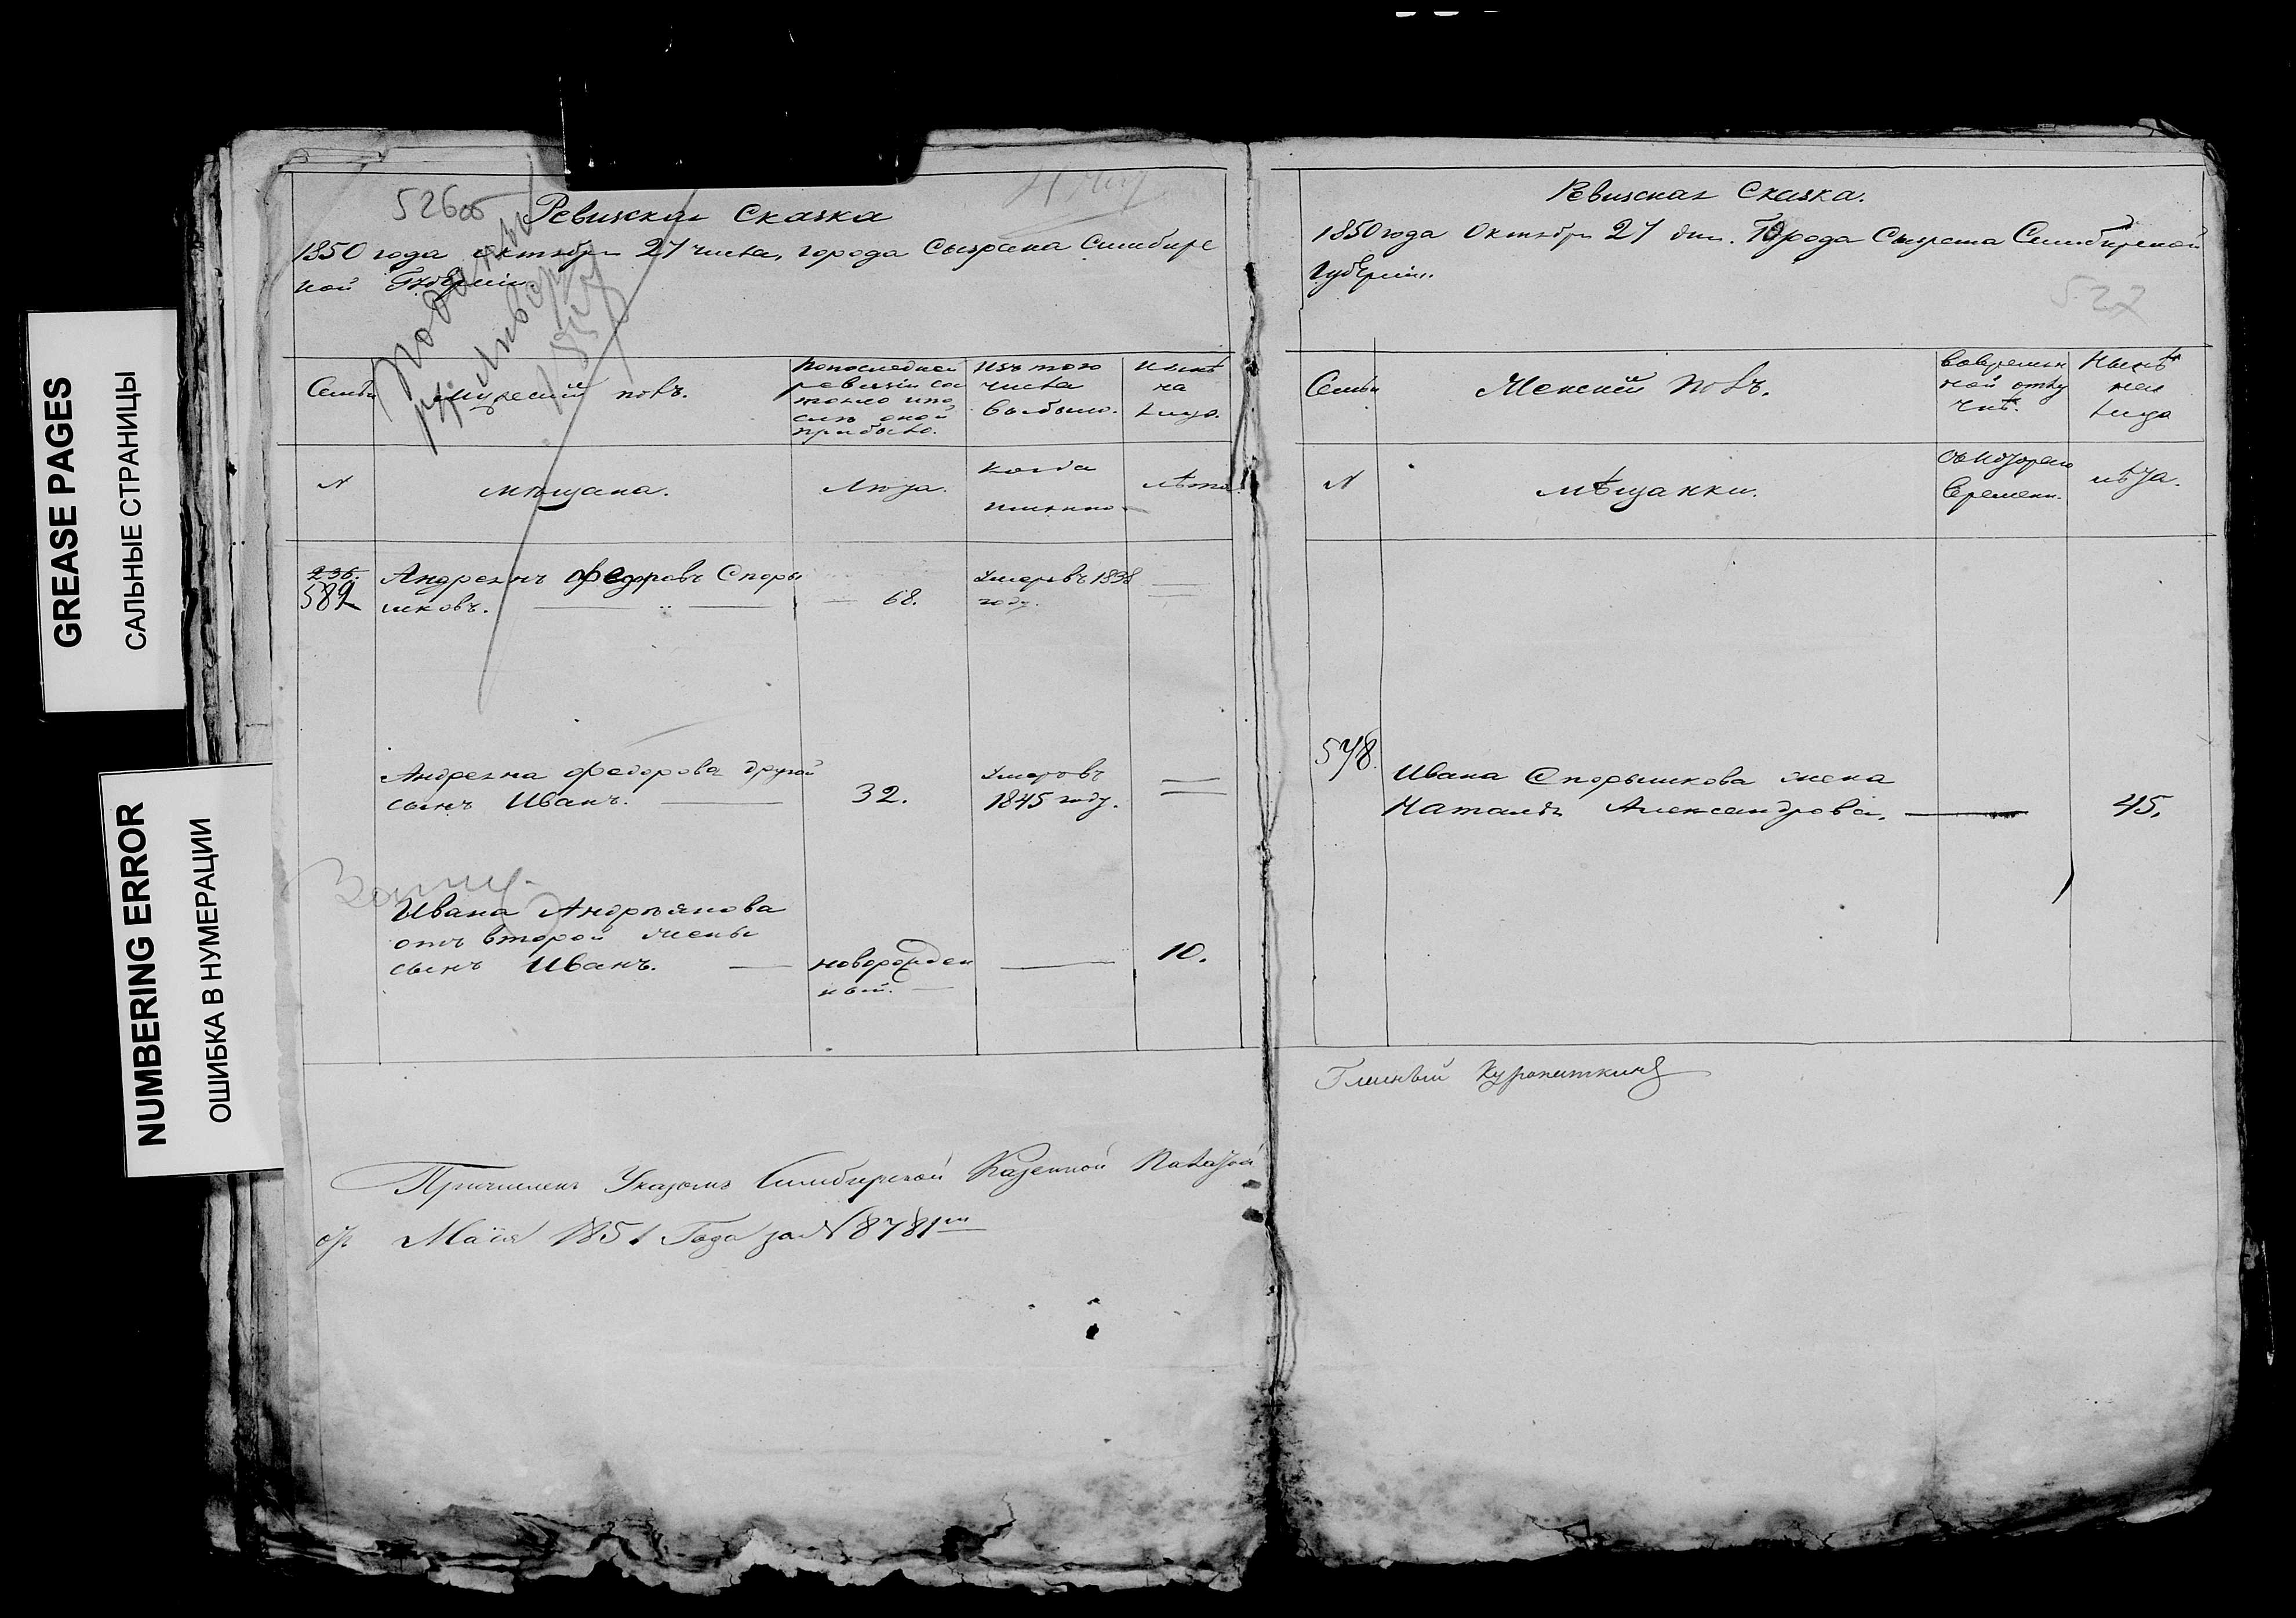 GREASE PAGES
САЛЬНЫЕ СТРАНИЦЫ
NUMBERING ERROR
ОШИБКА В НУМЕРАЦИИ
526об
Ревизская Сказка
1850 года октября 27 числа, города Сызрана Симбирс
кой Губернiи.
Семьи
Мужескiй полъ.
Попоследней
ревизiи со
стояло и по
слѣ оной
прибыло.
Изъ того
числа
выбыло.
Нынѣ
на
лицо.
N
мѣщана.
Лѣта.
Когда
именно
лѣта.
236.
589
Андреянъ Федоровъ Споры
шковъ.
68.
Умеръ въ 1838
году.
Андреяна Федорова другой
сынъ Иванъ.
32.
Умеръ въ
1845 году.
Ивана Андреянова
отъ второй жены
сынъ Иванъ.
новорожден
ный.
10.
Причисленъ Указомъ Симбирской Казенной Палаты
отъ Маiя 1851 Года за N 8781м
Ревизская Сказка.
1850 года Октября 27 дня. Города Сызрана Симбирской
Губернiи.
527
Семьи
Женскiй полъ.
Вовремен
ной отлу
чкѣ.
Нынѣ
на
лицо
N
мѣщанки.
Съ котораго
времени.
лѣта.
578.
Ивана Спорышкова жена
Наталья Александрова.
45.
Гласный Куропаткинъ